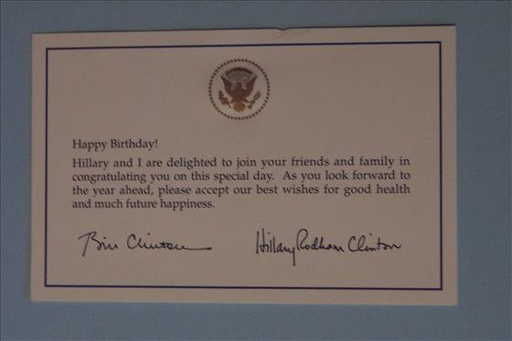 Happy Birthday!
Hillary and I are delighted to join your friends and family in
congratulating you on this special day. As you look forward to
the year ahead, please accept our best wishes for good health
and much future happiness.
Bill Clinton Hillary Rodham Clinton